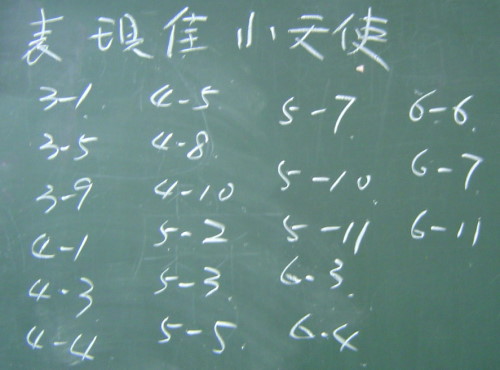 表現佳小天使
3-1 4-5 5-7 6-6
3-5 4-8 5-10 6-7
3-9 4-10 5-11 6-11
4-1 5-2 6-3
4-3 5-3 6-4
4-4 5-5